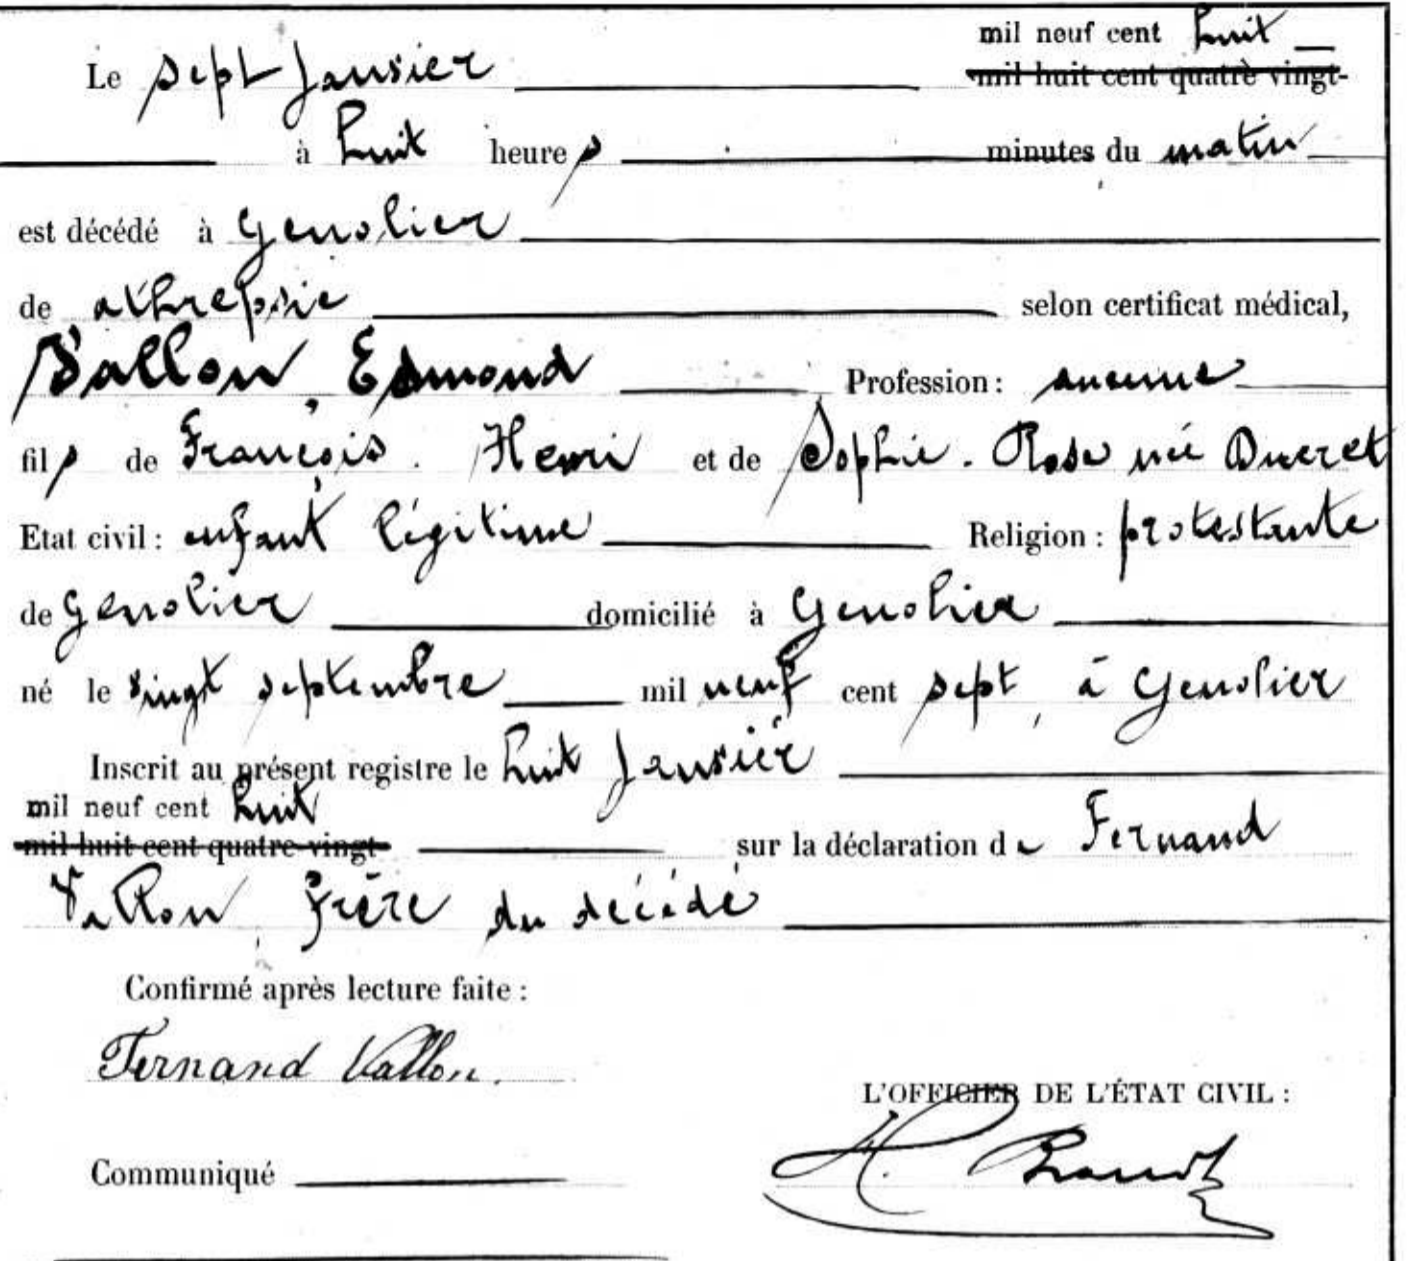 mil neuf cent huit
Le sept Janvier mil huit cent quatre vingt-
à huit heures minutes du matin
est décédé à Genolier
de athrepsie selon certificat médical,
Vallon, Edmond Profession : aucune
fils de François. Henri et de Sophie. Rose née Ducret
Etat civil : enfant légitime Religion : protestante
de Genolier domicilié à Genolier
né le vingt septembre mil neuf cent sept, à Genolier
Inscrit au présent registre le huit Janvier
mil neuf cent huit
mil huit cent quatre-vingt- sur la déclaration de Fernand
Vallon, frère du décédé
Confirmé après lecture faite :
Fernand Vallon.
L'OFFICIER DE L'ÉTAT CIVIL :
Communiqué